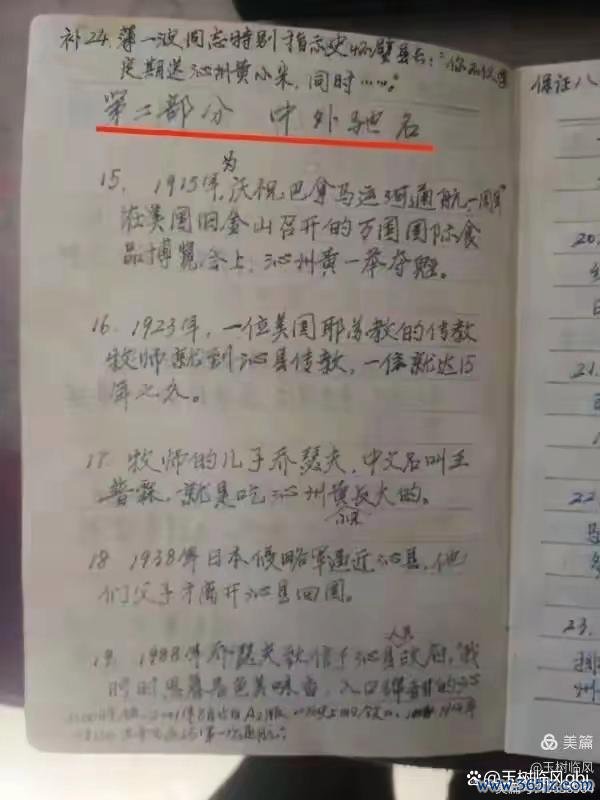 补24. 薄一波同志特别指示史怀璧县长:"你不仅要
定期送沁州黄小米,同时……。
第二部分 中外驰名
15. 1915年,为庆祝巴拿马运河通航一周年
在美国旧金山召开的万国国际食
品博览会上,沁州黄一举夺魁。
16. 1923年,一位美国耶苏教的传教
牧师就到沁县传教,一传就达15
年之久。
17. 牧师的儿子乔瑟夫,中文名叫王
普霖,就是吃沁州黄小米长大的。
18 1938年日本侵略军逼近沁县,他
们父子才离开沁县回国。
19. 1988年乔瑟夫致信于沁县人民政府,"我
时时思慕着色美味香,入口绵甜的
保证八
20.
21.
22.
23.
州
美篇
@玉树临风
@玉树临风gbj
www.365jz.com